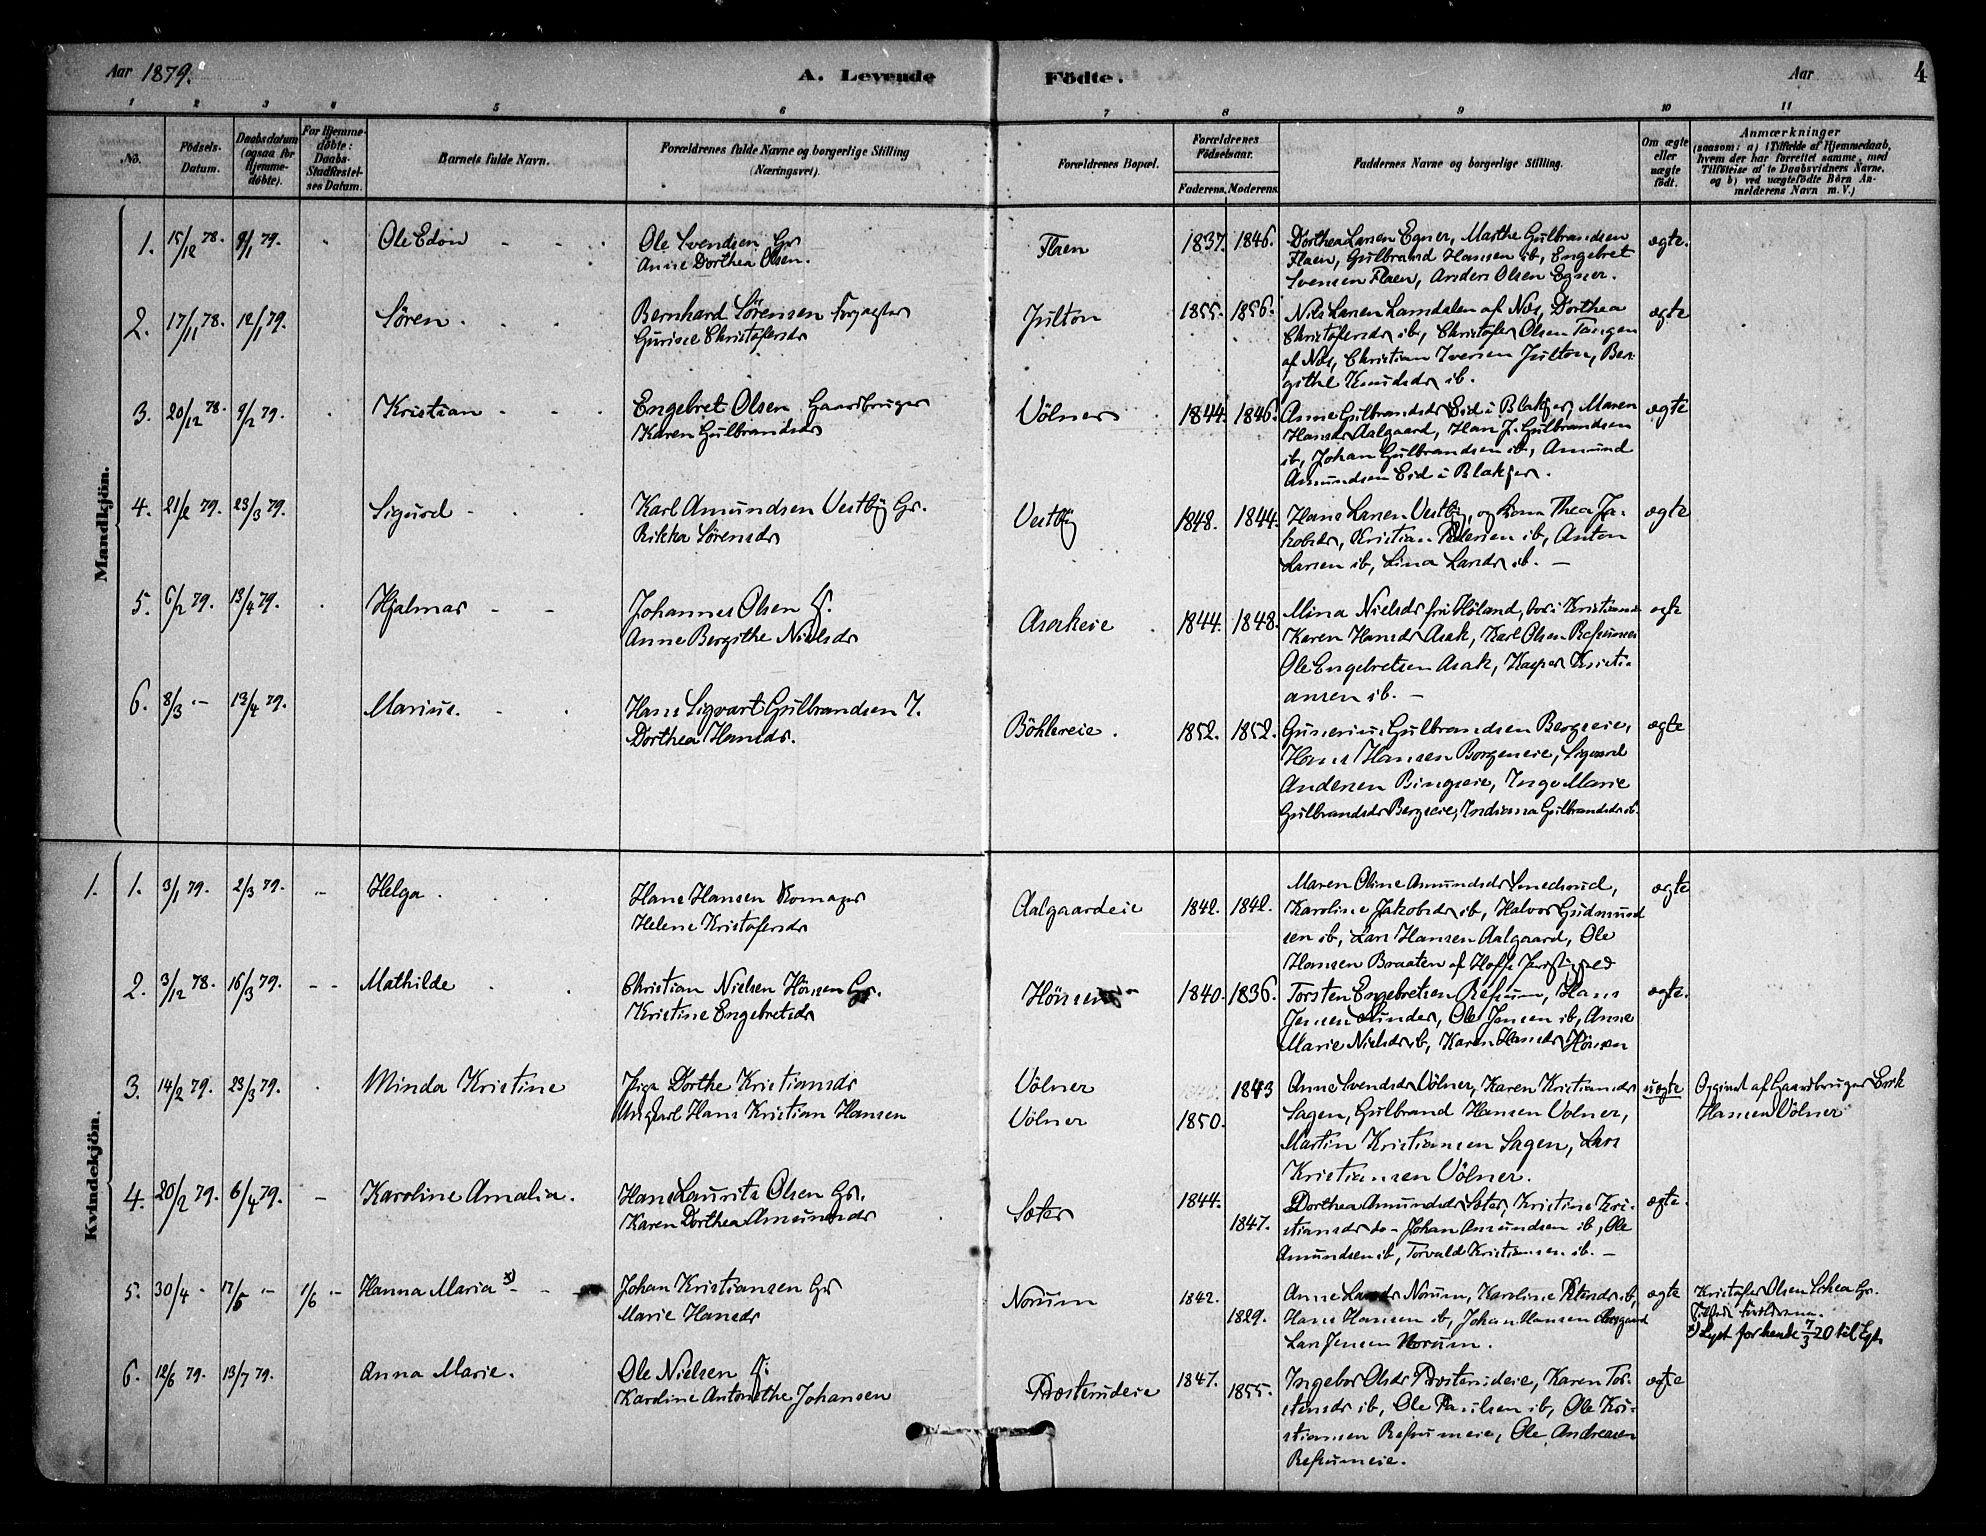 Aar 1879.
A. Levende Födte.
Aar 4
1 2 3 4 5 6 7 8 9 10 11
No.
Födsels-Datum.
Daabsdatum (ogsaa for Hjemmedöbte).
For Hjemmedöbte: Daabs-Stadfæstelses Datum.
Barnets fulde Navn.
Forældrenes fulde Navne og borgerlige Stilling (Næringsvei).
Forældrenes Bopæl.
Forældrenes Födselsaar.
Faderens. Moderens.
Faddernes Navne og borgerlige Stilling.
Om ægte eller uægte födt.
Anmærkninger
(saasom: a) i Tilfælde af Hjemmedaab, hvem der har forrettet samme, med Tilföielse af to Daabsvidners Navne, og b) ved uægtefödte Börn Anmelderens Navn m. V.)
Mandkjön.
1. 15/12 78. 9/1 79. Ole Edon Ole Svendsen Gr Flaen 1837. 1846. Dorthea Larsen Egner, Marthe Gulbrandsen ægte.
Anne Dorthea Olsen. Flaen, Gulbrand Hansen ib, Engebret
Svensen Flaen, Anders Olsen Egner.
2. 17/11 78. 12/1 79. Sören. Bernhard Sörensen Forpagter Julton 1855. 1856. Nils Larsen Lamdalen af Næs, Dorthea ægte
Gurine Christofersdr Christofersdr ib, Christofer Olsen Tangen
af Næs, Christian Iversen Julton, Ber-
githe Knudsdr ib.
3. 20/12 78. 9/2 79. Kristian Engebret Olsen Gaardbruger Völner 1844. 1846. Anne Gulbrandsdr Eid i Blakjer, Maren ægte
Karen Gulbrandsdr Hansdr Aalgaard, Hans J. Gulbrandsen
ib, Johan Gulbrandsen ib, Amund
Amundsen Eid i Blakjer.
4. 21/2 79. 23/3 79. Sigurd Karl Amundsen Vestby Gr. Vestby 1848. 1844. Hans Larsen Vestby, og Kone Thea Ja- ægte
Rikka Sörensdr kobsdr, Kristian Pedersen ib, Anton
Larsen ib, Lina Larsdr ib. —
5. 6/2 79. 13/4 79. Hjalmar Johannes Olsen Asakeie 1844. 1848. Mina Nielsdr fra Höland, bor i Kristiania ægte
Anne Bergithe Nielsdr Karen Hansdr Asak, Karl Olsen
Ole Engebretsen Asak, Kasper Kristi-
ansen ib. —
6. 8/3 - 13/4 79. Marius. Hans Sigvart Gulbrandsen I. Böhlereie. 1852. 1852. Gunerius Gulbrandsen Bergseie, ægte
Dorthea Hansdr. Hans Hansen Borgeneie, Sigvard
Andersen Bingseie, Inge Marie
Gulbrandsdr Bergseie, Indiana Gulbrandsdr ib.
Kvindekjön.
1. 1. 3/1 79. 2/3 79. Helga. Hans Hansen Komager Aalgaardeie 1842. 1842. Maren Oline Amundsdr ægte
Helene Kristofersdr Karoline Jakobsdr ib, Halvor Gudmund
sen ib, Lars Hansen Aalgaard, Ole
Hansen Braaten af
2. 3/12 78. 16/3 79. Mathilde Christian Nielsen Hönsen Gr. Hönsen 1840. 1836. Torsten Engebretsen Refsum, Hans ægte.
Kristine Engebretsdr Jensen Sunder, Ole Jensen ib, Anne
Marie Nielsdr ib, Karen Hansdr Hönsen
3. 14/2 79. 23/3 79. Minda Kristine Pige Dorthe Kristiansdr Völner 1843 Anne Svendsdr Völner, Karen Kristiansdr uægte Opgivet af Gaardbruger Erik
Ungkarl Hans Kristian Hansen Völner 1850. Sagen, Gulbrand Hansen Volner, Hansen Völner
Martin Kristiansen Sagen, Lars
Kristiansen Völner.
4. 20/2 79. 6/4 79. Karoline Amalia. Hans Laurits Olsen Gr. Sæter 1844. 1847. Dorthea Amundsdr Sæter, Kristine Kri- ægte.
Karen Dorthea Amundsdr stiansdr do - Johan Amundsen ib, Ole
Amundsen ib, Torvald Kristiansen ib. —
5. 30/4 - 17/5 - 1/6 - Hanna Maria x) Johan Kristiansen Gr Norum 1842. 1829. Anne Larsdr Norum, Karoline Pedersdr ib, ægte Kristofer Olsen Gr.
Marie Hansdr Hans Hansen ib, Johan Hansen
Lars Jensen Norum. x) Lyst for hende 7/3 20 til
6. 12/6 79. 13/7 79. Anna Marie. Ole Nielsen Præsterudeie 1847. 1855. Ingebor Olsdr Præsterudeie, Karen Tor- ægte
Karoline Antonethe Johansen stensdr ib, Ole Paulsen ib, Ole Kri-
stiansen Refsumeie, Ole Andreasen
Refsumeie.